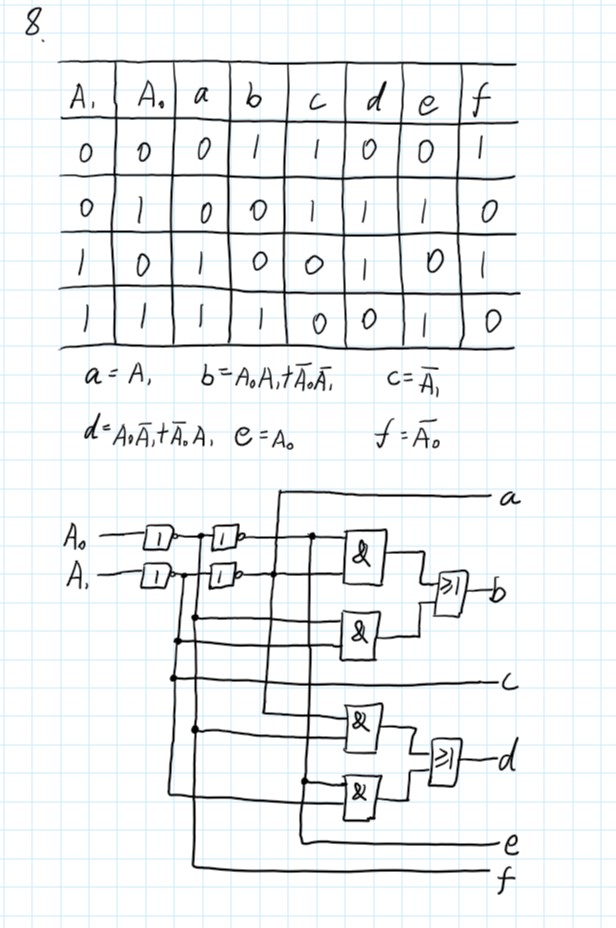 8.
A₁ A₀ a b c d e f
0 0 0 1 1 0 0 1
0 1 0 0 1 1 1 0
1 0 1 0 0 1 0 1
1 1 1 1 0 0 1 0
a = A₁ b = A₀A₁ + A̅₀A̅₁ c = A̅₁
d = A₀A̅₁ + A̅₀A₁ e = A₀ f = A̅₀
a
A₀ 1 1 &
A₁ 1 1 ≥1 b
&
c
&
≥1 d
&
e
f